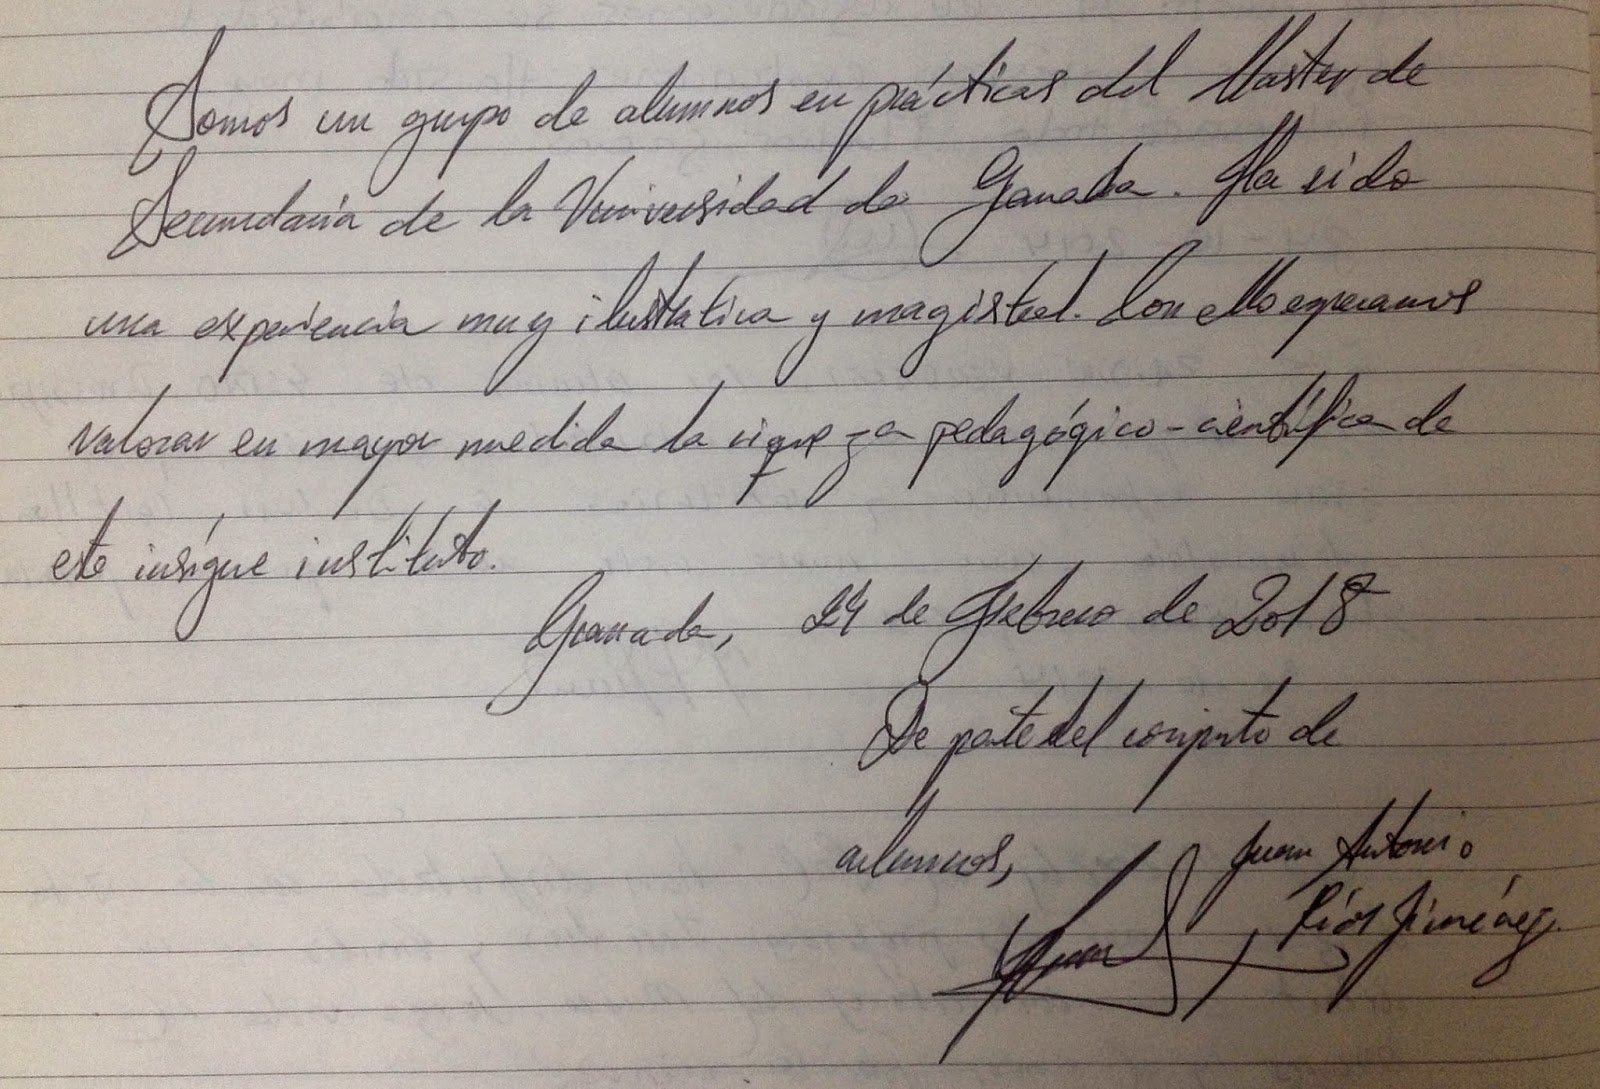 Somos un grupo de alumnos en prácticas del Master de
Secundaria de la Universidad de Granada. Ha sido
una experiencia muy ilustrativa y magistral. Con ello esperamos
valorar en mayor medida la riqueza pedagógico-científica de
este insigne instituto.
Granada, 24 de Febrero de 2018
De parte del conjunto de
alumnos,
Juan Antonio
Ríos Jiménez.
Juan